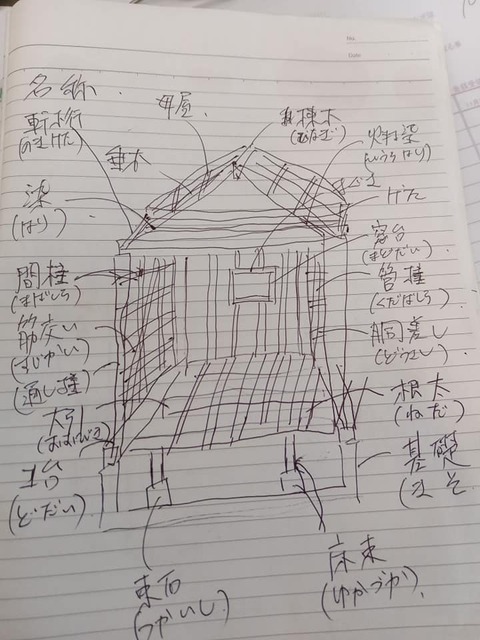 名称
母屋
棟木
(むなぎ)
軒桁
(のきげた)
垂木
(はり)
げた
窓台
(まどだい)
間柱
(まばしら)
管柱
(くだばしら)
筋交い
(すじかい)
胴差し
(どうさし)
(通し柱)
大引
(おおびき)
根太
(ねだ)
土台
(どだい)
基礎
(きそ
束石
(つかいし)
床束
(ゆかづか)
No.
Date